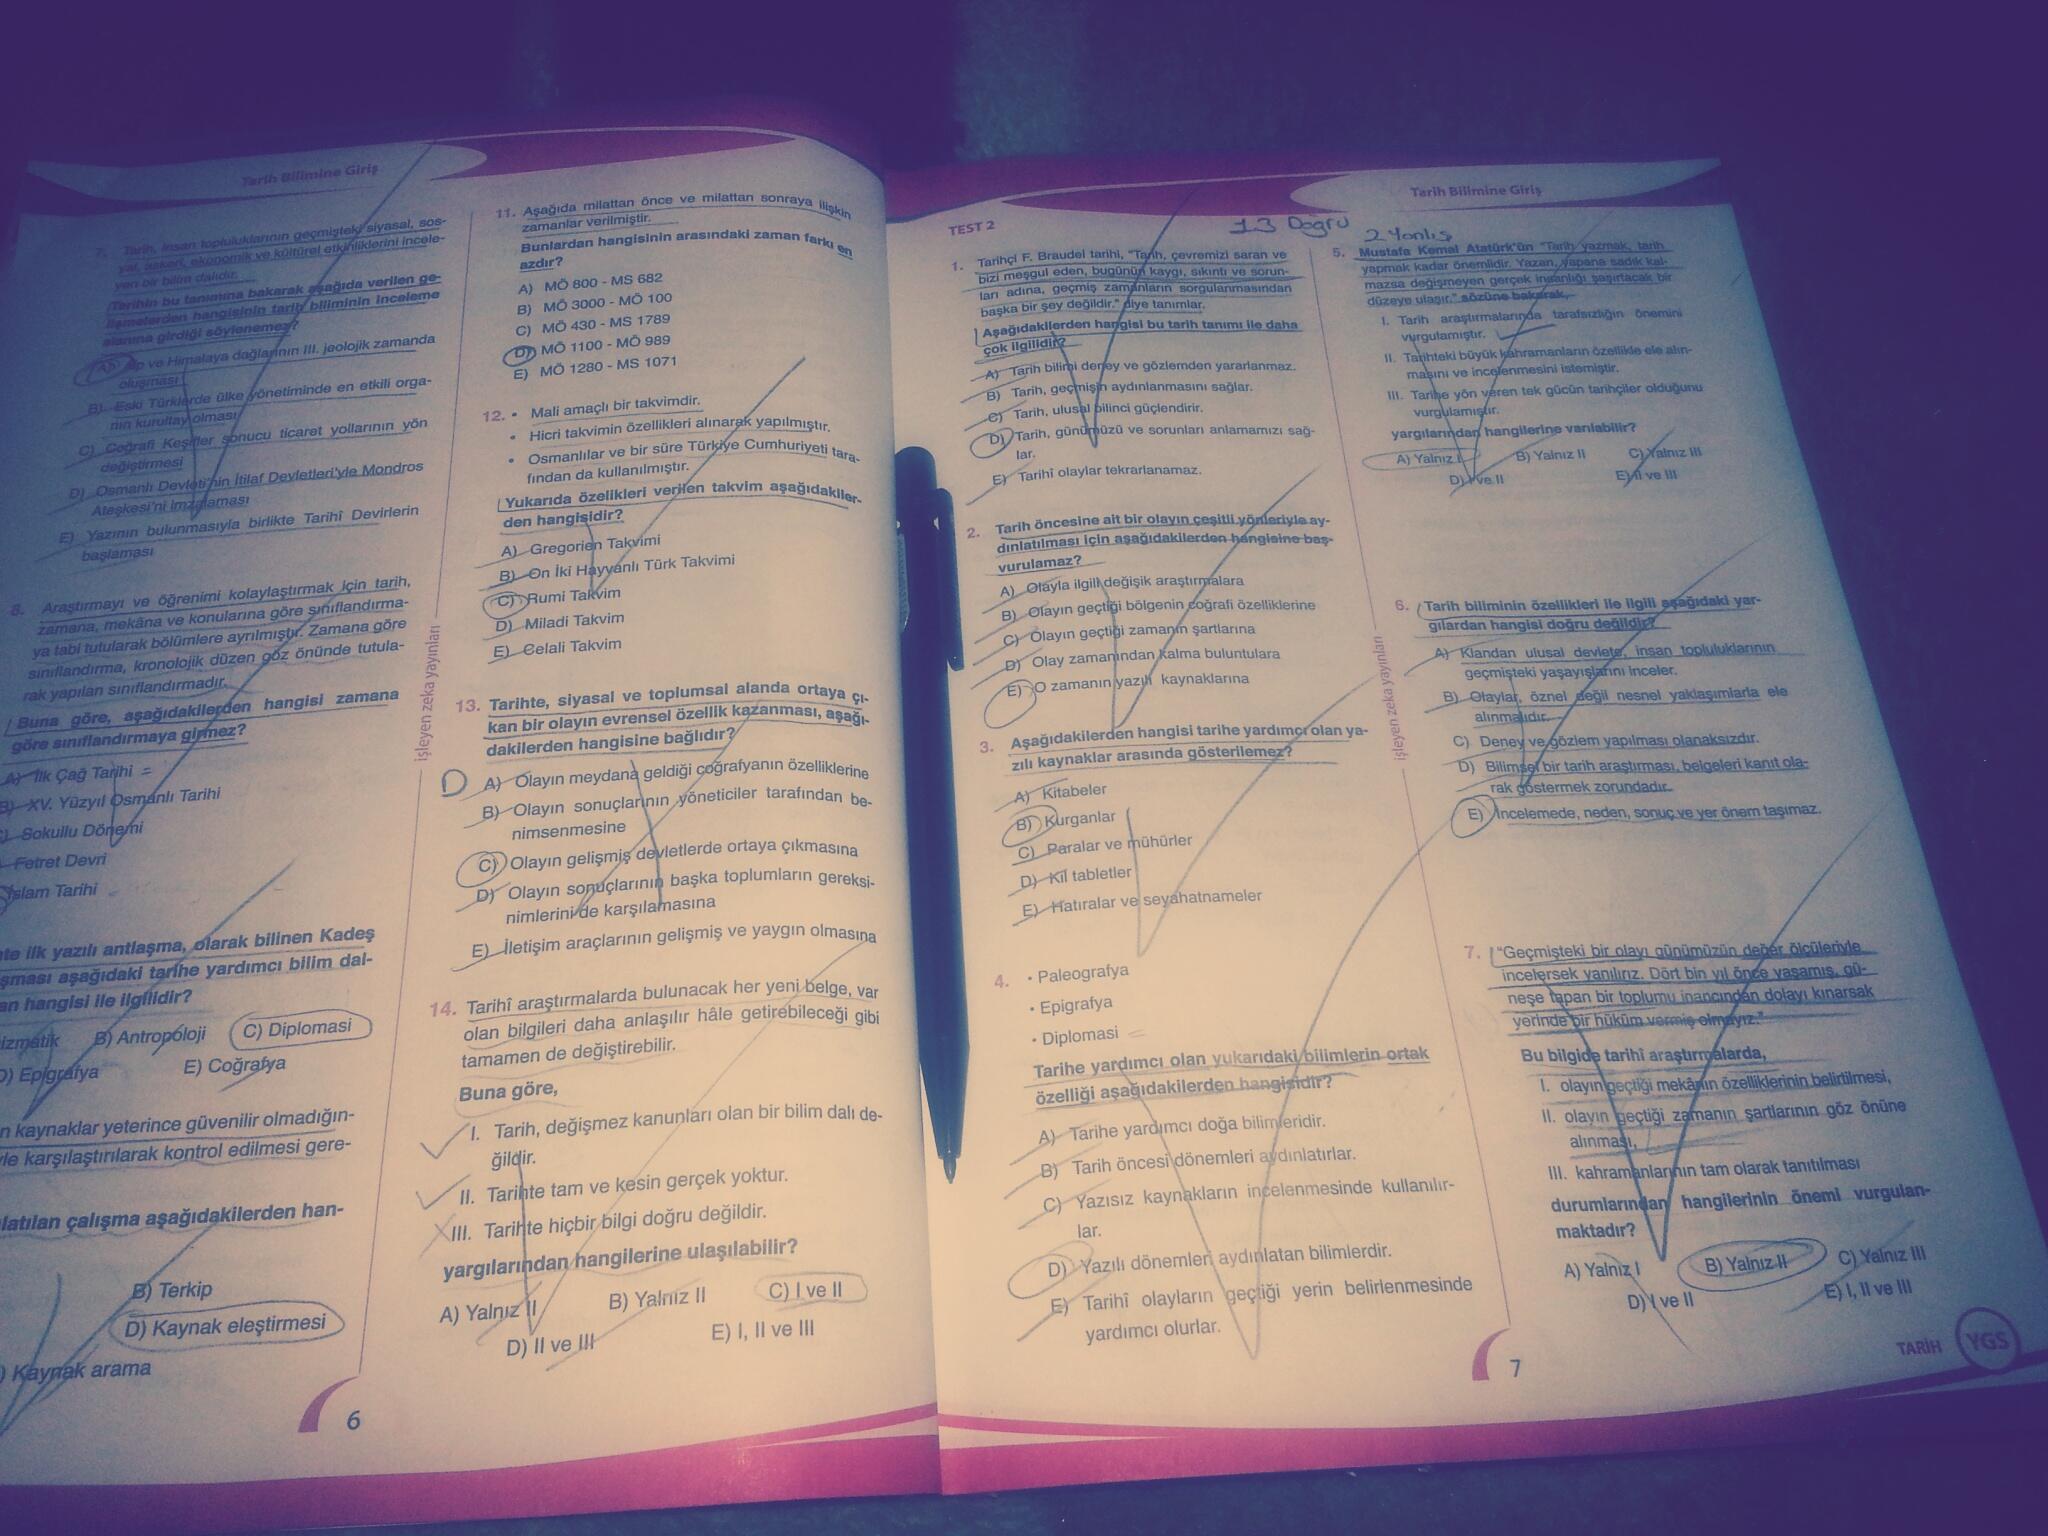 Tarih Bilimine Giriş
7. Tarih, insan topluluklarının geçmişteki siyasal, sos-
yal, askerî, ekonomik ve kültürel etkinliklerini incele-
yen bir bilim dalıdır.
Tarihin bu tanımına bakarak aşağıda verilen ge-
lişmelerden hangisinin tarih biliminin inceleme
alanına girdiği söylenemez?
A) Alp ve Himalaya dağlarının III. jeolojik zamanda
oluşması
B) Eski Türklerde ülke yönetiminde en etkili orga-
nın kurultay olması
C) Coğrafi Keşifler sonucu ticaret yollarının yön
değiştirmesi
D) Osmanlı Devleti'nin İtilaf Devletleri'yle Mondros
Ateşkesi'ni imzalaması
E) Yazının bulunmasıyla birlikte Tarihî Devirlerin
başlaması
8. Araştırmayı ve öğrenimi kolaylaştırmak için tarih,
zamana, mekâna ve konularına göre sınıflandırma-
ya tabi tutularak bölümlere ayrılmıştır. Zamana göre
sınıflandırma, kronolojik düzen göz önünde tutula-
rak yapılan sınıflandırmadır.
Buna göre, aşağıdakilerden hangisi zamana
göre sınıflandırmaya girmez?
A) İlk Çağ Tarihi
B) XV. Yüzyıl Osmanlı Tarihi
) Sokullu Dönemi
Fetret Devri
İslam Tarihi
ilk yazılı antlaşma, olarak bilinen Kadeş
aşağıdaki tarihe yardımcı bilim dal-
hangisi ile ilgilidir?
B) Antropoloji C) Diplomasi
D) Epigrafya E) Coğrafya
kaynaklar yeterince güvenilir olmadığın-
karşılaştırılarak kontrol edilmesi gere-
çalışma aşağıdakilerden han-
B) Terkip
D) Kaynak eleştirmesi
) Kaynak arama
11. Aşağıda milattan önce ve milattan sonraya ilişkin
zamanlar verilmiştir.
Bunlardan hangisinin arasındaki zaman farkı en
azdır?
A) MÖ 800 - MS 682
B) MÖ 3000 - MÖ 100
C) MÖ 430 - MS 1789
D) MÖ 1100 - MÖ 989
E) MÖ 1280 - MS 1071
12. • Mali amaçlı bir takvimdir.
• Hicri takvimin özellikleri alınarak yapılmıştır.
• Osmanlılar ve bir süre Türkiye Cumhuriyeti tara-
fından da kullanılmıştır.
Yukarıda özelikleri verilen takvim aşağıdakiler-
den hangisidir?
A) Gregorien Takvimi
B) On İki Hayvanlı Türk Takvimi
C) Rumi Takvim
D) Miladi Takvim
E) Celali Takvim
13. Tarihte, siyasal ve toplumsal alanda ortaya çı-
kan bir olayın evrensel özellik kazanması, aşağı-
dakilerden hangisine bağlıdır?
D
A) Olayın meydana geldiği coğrafyanın özelliklerine
B) Olayın sonuçlarının yöneticiler tarafından be-
nimsenmesine
C) Olayın gelişmiş devletlerde ortaya çıkmasına
D) Olayın sonuçlarının başka toplumların gereksi-
nimlerini de karşılamasına
E) İletişim araçlarının gelişmiş ve yaygın olmasına
14. Tarihî araştırmalarda bulunacak her yeni belge, var
olan bilgileri daha anlaşılır hâle getirebileceği gibi
tamamen de değiştirebilir.
Buna göre,
I. Tarih, değişmez kanunları olan bir bilim dalı de-
ğildir.
II. Tarihte tam ve kesin gerçek yoktur.
III. Tarihte hiçbir bilgi doğru değildir.
yargılarından hangilerine ulaşılabilir?
A) Yalnız II B) Yalnız II C) I ve II
D) II ve III E) I, II ve III
işleyen zeka yayınları
6
Tarih Bilimine Giriş
TEST 2
13 Doğru
2 Yanlış
1. Tarihçi F. Braudel tarihi, "Tarih, çevremizi saran ve
bizi meşgul eden, bugünün kaygı, sıkıntı ve sorun-
ları adına, geçmiş zamanların sorgulanmasından
başka bir şey değildir." diye tanımlar.
Aşağıdakilerden hangisi bu tarih tanımı ile daha
çok ilgilidir?
A) Tarih bilimi deney ve gözlemden yararlanmaz.
B) Tarih, geçmişin aydınlanmasını sağlar.
C) Tarih, ulusal bilinci güçlendirir.
D) Tarih, günümüzü ve sorunları anlamamızı sağ-
lar.
E) Tarihî olaylar tekrarlanamaz.
2. Tarih öncesine ait bir olayın çeşitli yönleriyle ay-
dınlatılması için aşağıdakilerden hangisine baş-
vurulamaz?
A) Olayla ilgili değişik araştırmalara
B) Olayın geçtiği bölgenin coğrafi özelliklerine
C) Olayın geçtiği zamanın şartlarına
D) Olay zamanından kalma buluntulara
E) O zamanın yazılı kaynaklarına
3. Aşağıdakilerden hangisi tarihe yardımcı olan ya-
zılı kaynaklar arasında gösterilemez?
A) Kitabeler
B) Kurganlar
C) Paralar ve mühürler
D) Kil tabletler
E) Hatıralar ve seyahatnameler
4. • Paleografya
• Epigrafya
• Diplomasi
Tarihe yardımcı olan yukarıdaki bilimlerin ortak
özelliği aşağıdakilerden hangisidir?
A) Tarihe yardımcı doğa bilimleridir.
B) Tarih öncesi dönemleri aydınlatırlar.
C) Yazısız kaynakların incelenmesinde kullanılır-
lar.
D) Yazılı dönemleri aydınlatan bilimlerdir.
E) Tarihî olayların geçtiği yerin belirlenmesinde
yardımcı olurlar.
işleyen zeka yayınları
5. Mustafa Kemal Atatürk'ün "Tarih yazmak, tarih
yapmak kadar önemlidir. Yazan, yapana sadık kal-
mazsa değişmeyen gerçek insanlığı şaşırtacak bir
düzeye ulaşır." sözüne bakarak,
I. Tarih araştırmalarında tarafsızlığın önemini
vurgulamıştır.
II. Tarihteki büyük kahramanların özellikle ele alın-
masını ve incelenmesini istemiştir.
III. Tarihe yön veren tek gücün tarihçiler olduğunu
vurgulamıştır.
yargılarından hangilerine varılabilir?
A) Yalnız I B) Yalnız II C) Yalnız III
D) I ve II E) II ve III
6. Tarih biliminin özellikleri ile ilgili aşağıdaki yar-
gılardan hangisi doğru değildir?
A) Klandan ulusal devlete, insan topluluklarının
geçmişteki yaşayışlarını inceler.
B) Olaylar, öznel değil nesnel yaklaşımlarla ele
alınmalıdır.
C) Deney ve gözlem yapılması olanaksızdır.
D) Bilimsel bir tarih araştırması, belgeleri kanıt ola-
rak göstermek zorundadır.
E) İncelemede, neden, sonuç ve yer önem taşımaz.
7. "Geçmişteki bir olayı günümüzün değer ölçüleriyle
incelersek yanılırız. Dört bin yıl önce yaşamış, gü-
neşe tapan bir toplumu inancından dolayı kınarsak
yerinde bir hüküm vermiş olmayız."
Bu bilgide tarihî araştırmalarda,
I. olayın geçtiği mekânın özelliklerinin belirtilmesi,
II. olayın geçtiği zamanın şartlarının göz önüne
alınması,
III. kahramanlarının tam olarak tanıtılması
durumlarından hangilerinin önemi vurgulan-
maktadır?
A) Yalnız I B) Yalnız II C) Yalnız III
D) I ve II E) I, II ve III
7
TARİH YGS